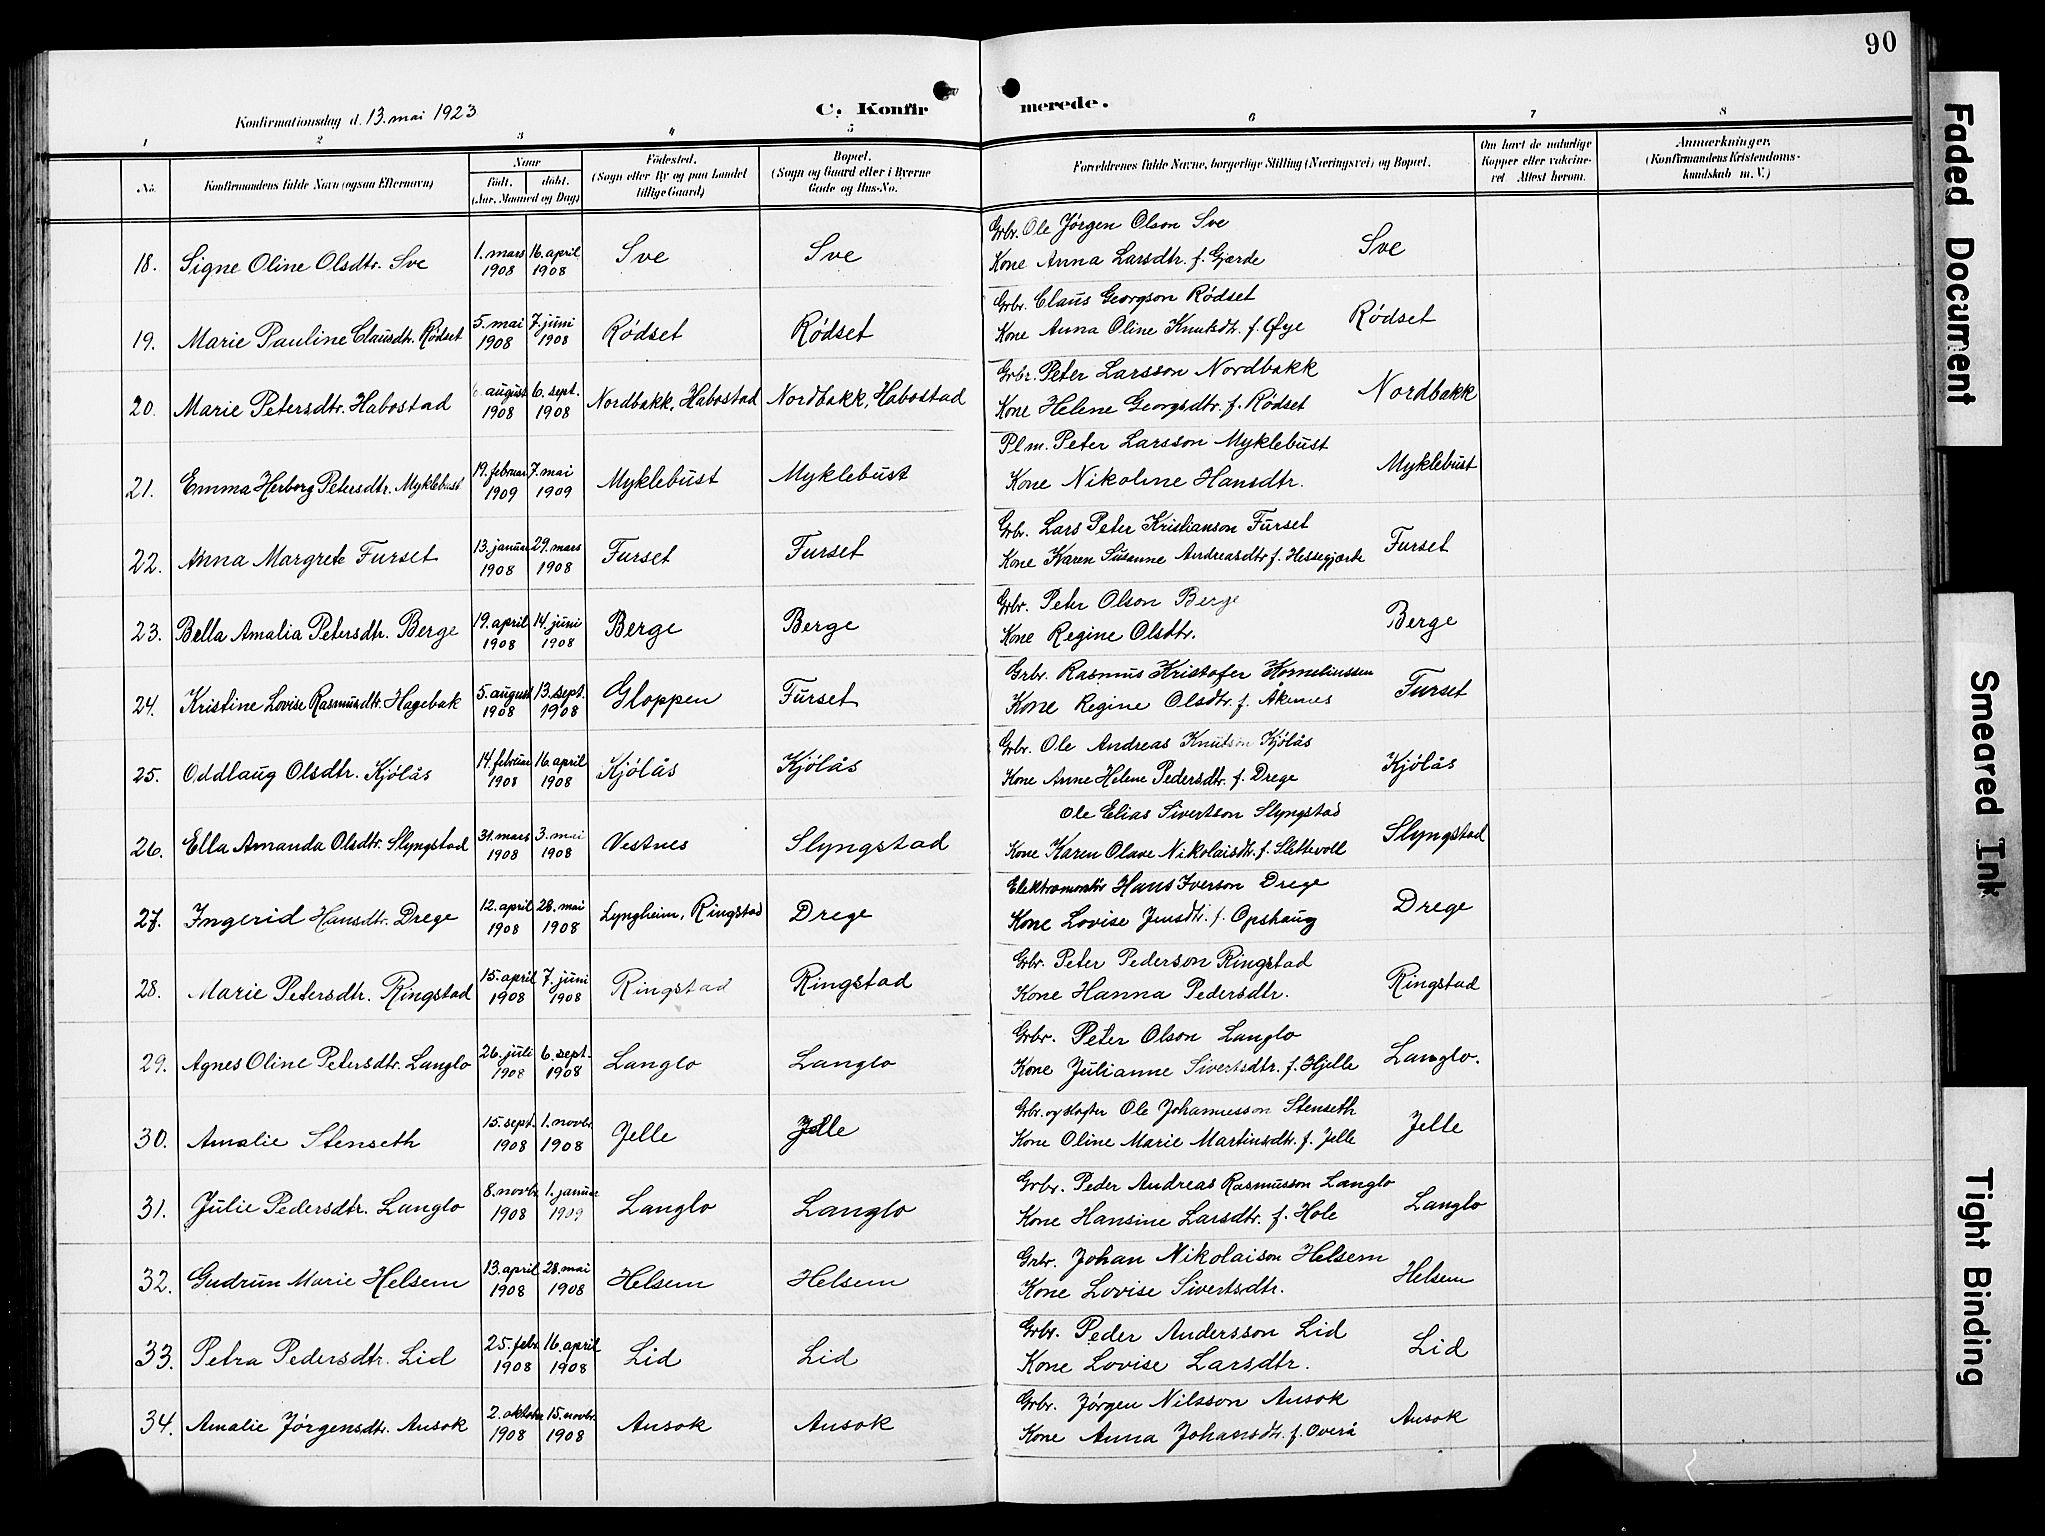 90
Konfirmationsdag d. 13. mai 1923
C. Konfirmerede.
1 2 3 4 5 6 7 8
No.
Konfirmandens fulde Navn (ogsaa Efternavn)
Naar
født. døbt.
(Aar, Maaned og Dag)
Fødested.
(Sogn eller By og paa Landet
tillige Gaard)
Bopæl.
(Sogn og Gaard eller i Byerne
Gade og Hus-No.
Forældrenes fulde Navne, borgerlige Stilling (Næringsvei) og Bopæl.
Om havt de naturlige
Kopper eller vakcine-
ret. Attest herom.
Anmærkninger.
(Konfirmandens Kristendoms-
kundskab m. V.)
18. Signe Oline Olsdtr. Sve 1. mars 1908 16. april 1908 Sve Sve Grbr. Ole Jörgen Olson Sve
Kone Anna Larsdtr. f. Gjærde Sve
19. Marie Pauline Clausdtr. Rödset 5. mai 1908 7. juni 1908 Rödset Rödset Grbr. Claus Georgson Rödset
Kone Anna Oline Knutsdtr. f. Øye Rödset
20. Marie Petersdtr. Habostad august 1908 6. sept. 1908 Nordbakk, Habostad Nordbakk, Habostad Grbr. Peter Larsson Nordbakk
Kone Helene Georgsdtr. f. Rödset Nordbakk
21. Emma Herborg Petersdtr. Myklebust 19. februar 1909 7. mai 1909 Myklebust Myklebust Plm. Peter Larsson Myklebust
Kone Nikoline Hansdtr. Myklebust
22. Anna Margrete Furset 13. januar 1908 29. mars 1908 Furset Furset Grbr. Lars Peter Kristianson Furset
Kone Karen Susanne Andreasdtr f. Hessegjærde Furset
23. Bella Amalia Petersdtr. Berge 19. april 1908 14. juni 1908 Berge Berge Grbr. Peter Olson Berge
Kone Regine Olsdtr. Berge
24. Kristine Lovise Rasmusdtr. Hagebak 5. august 1908 13. sept. 1908 Gloppen Furset Grbr. Rasmus Kristofer Korneliussen
Kone Regine Olsdtr. f. Åkernes Furset
25. Oddlaug Olsdtr. Kjölås 14. februar 1908 16. april 1908 Kjölås Kjölås Grbr. Ole Andreas Knutson Kjölås
Kone Anne Helene Pedersdtr. f. Drege Kjölås
26. Ella Amanda Olsdtr. Slyngstad 31. mars 1908 3. mai 1908 Vestnes Slyngstad Ole Elias Sivertson Slyngstad
Kone Karen Olave Nikolaisdtr. f. Slettevoll Slyngstad
27. Ingerid Hansdtr. Drege 12. april 1908 28. mai 1908 Lyngheim, Ringstad Drege Elektromontör Hans Iverson Drege
Kone Lovise Jensdtr. f. Opshaug Drege
28. Marie Petersdtr. Ringstad 15. april 1908 7. juni 1908 Ringstad Ringstad Grbr. Peter Pederson Ringstad
Kone Hanna Pedersdtr. Ringstad
29. Agnes Oline Petersdtr. Langlo 26. juli 1908 6. sept. 1908 Langlo Langlo Grbr. Peter Olson Langlo
Kone Julianne Sivertsdtr. f. Hjelle Langlo.
30. Amalie Stenseth 15. sept. 1908 1. novbr. 1908 Jelle Jelle Grbr. og slagter Ole Johannesson Stenseth
Kone Oline Marie Martinsdtr. f. Jelle Jelle
31. Julie Pedersdtr. Langlo 8. novbr. 1908 1. januar 1909 Langlo Langlo Grbr. Peder Andreas Rasmusson Langlo
Kone Hansine Larsdtr. f. Hole Langlo
32. Gudrun Marie Helsem 13. april 1908 28. mai 1908 Helsem Helsem Grbr. Johan Nikolaison Helsem
Kone Lovise Sivertsdtr. Helsem
33. Petra Pedersdtr. Lid 25. febr. 1908 16. april 1908 Lid Lid Grbr. Peder Andersson Lid
Kone Lovise Larsdtr. Lid
34. Amalie Jörgensdtr. Ansok 2. oktober 1908 15. novbr. 1908 Ansok Ansok Grbr. Jörgen Nilsson Ansok
Kone Anna Johansdtr. f. Overå Ansok
Faded Document
Smeared Ink
Tight Binding